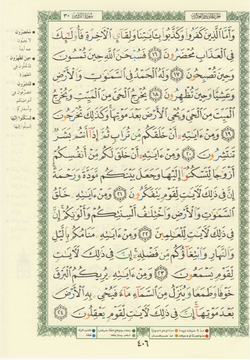 وَأَمَّا ٱلَّذِينَ كَفَرُوا۟ وَكَذَّبُوا۟ بِـَٔايَـٰتِنَا وَلِقَآئِ ٱلْـَٔاخِرَةِ فَأُو۟لَـٰٓئِكَ
فِى ٱلْعَذَابِ مُحْضَرُونَ ١٦ فَسُبْحَـٰنَ ٱللَّهِ حِينَ تُمْسُونَ
وَحِينَ تُصْبِحُونَ ١٧ وَلَهُ ٱلْحَمْدُ فِى ٱلسَّمَـٰوَٰتِ وَٱلْأَرْضِ
وَعَشِيًّا وَحِينَ تُظْهِرُونَ ١٨ يُخْرِجُ ٱلْحَىَّ مِنَ ٱلْمَيِّتِ وَيُخْرِجُ
ٱلْمَيِّتَ مِنَ ٱلْحَىِّ وَيُحْىِ ٱلْأَرْضَ بَعْدَ مَوْتِهَا ۚ وَكَذَٰلِكَ تُخْرَجُونَ
١٩ وَمِنْ ءَايَـٰتِهِۦٓ أَنْ خَلَقَكُم مِّن تُرَابٍ ثُمَّ إِذَآ أَنتُم بَشَرٌ
تَنتَشِرُونَ ٢٠ وَمِنْ ءَايَـٰتِهِۦٓ أَنْ خَلَقَ لَكُم مِّنْ أَنفُسِكُمْ
أَزْوَٰجًا لِّتَسْكُنُوٓا۟ إِلَيْهَا وَجَعَلَ بَيْنَكُم مَّوَدَّةً وَرَحْمَةً ۚ
إِنَّ فِى ذَٰلِكَ لَـَٔايَـٰتٍ لِّقَوْمٍ يَتَفَكَّرُونَ ٢١ وَمِنْ ءَايَـٰتِهِۦ خَلْقُ
ٱلسَّمَـٰوَٰتِ وَٱلْأَرْضِ وَٱخْتِلَـٰفُ أَلْسِنَتِكُمْ وَأَلْوَٰنِكُمْ ۚ إِنَّ
فِى ذَٰلِكَ لَـَٔايَـٰتٍ لِّلْعَـٰلِمِينَ ٢٢ وَمِنْ ءَايَـٰتِهِۦ مَنَامُكُم بِٱلَّيْلِ
وَٱلنَّهَارِ وَٱبْتِغَآؤُكُم مِّن فَضْلِهِۦٓ ۚ إِنَّ فِى ذَٰلِكَ لَـَٔايَـٰتٍ
لِّقَوْمٍ يَسْمَعُونَ ٢٣ وَمِنْ ءَايَـٰتِهِۦ يُرِيكُمُ ٱلْبَرْقَ
خَوْفًا وَطَمَعًا وَيُنَزِّلُ مِنَ ٱلسَّمَآءِ مَآءً فَيُحْىِۦ بِهِ ٱلْأَرْضَ
بَعْدَ مَوْتِهَآ ۚ إِنَّ فِى ذَٰلِكَ لَـَٔايَـٰتٍ لِّقَوْمٍ يَعْقِلُونَ ٢٤
٤٠٦